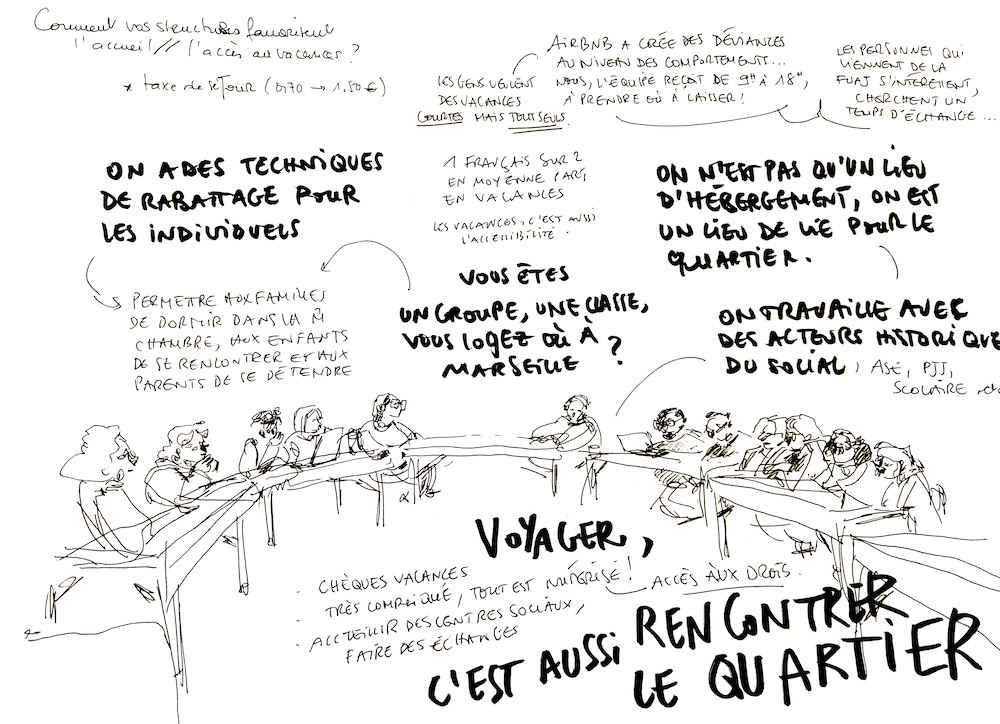 Comment vos structures favorisent
l'accueil // l'accès aux vacances ?
* taxe de séjour (0,70 → 1.80 €)
LES GENS VEULENT
DES VACANCES
COURTES MAIS TOUT SEULS.
AIRBNB A CRÉE DES DÉVIANCES
AU NIVEAU DES COMPORTEMENTS...
NOUS, L'ÉQUIPE REÇOIT DE 9H À 18H,
À PRENDRE OÙ À LAISSER !
LES PERSONNES QUI
VIENNENT DE LA
FUAJ S'INTÉRESSENT,
CHERCHENT UN
TEMPS D'ÉCHANGE...
ON A DES TECHNIQUES
DE RABATTAGE POUR
LES INDIVIDUELS
PERMETTRE AUX FAMILLES
DE DORMIR DANS LA M̂
CHAMBRE, AUX ENFANTS
DE SE RENCONTRER ET AUX
PARENTS DE SE DÉTENDRE
1 FRANÇAIS SUR 2
EN MOYENNE PART
EN VACANCES
LES VACANCES, C'EST AUSSI
L'ACCESSIBILITÉ.
VOUS ÊTES
UN GROUPE, UNE CLASSE,
VOUS LOGEZ OÙ À
MARSEILLE ?
ON N'EST PAS QU'UN LIEU
D'HÉBERGEMENT, ON EST
UN LIEU DE VIE POUR LE
QUARTIER.
ON TRAVAILLE AVEC
DES ACTEURS HISTORIQUE
DU SOCIAL, ASE, PJJ,
SCOLAIRE, etc
VOYAGER,
C'EST AUSSI RENCONTRER
LE QUARTIER
· CHÈQUES VACANCES
TRÈS COMPLIQUÉ, TOUT EST NUMÉRISÉ !
ACCÈS AUX DROITS.
· ACCUEILLIR DES CENTRES SOCIAUX,
· FAIRE DES ÉCHANGES